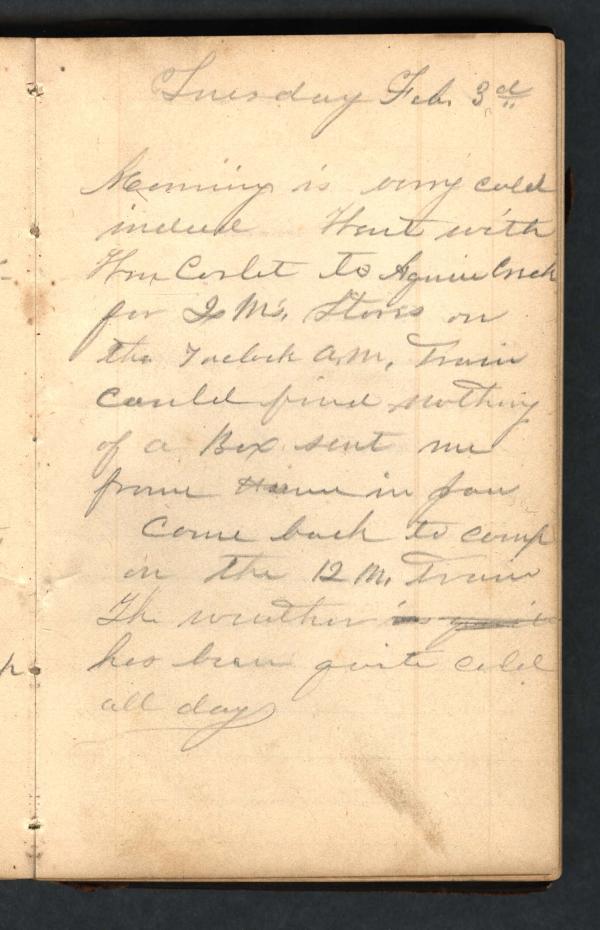 Tuesday Feb. 3d
Morning is very cold
indeed Went with
Wm Corlet to Aquia Creek
for Q M's. Stores on
the 7 oclock A.M. Train
could find nothing
of a Box sent me
from Home in Jan
Come back to camp
on the 12 M. Train
The weather is quite
has been quite cold
all day